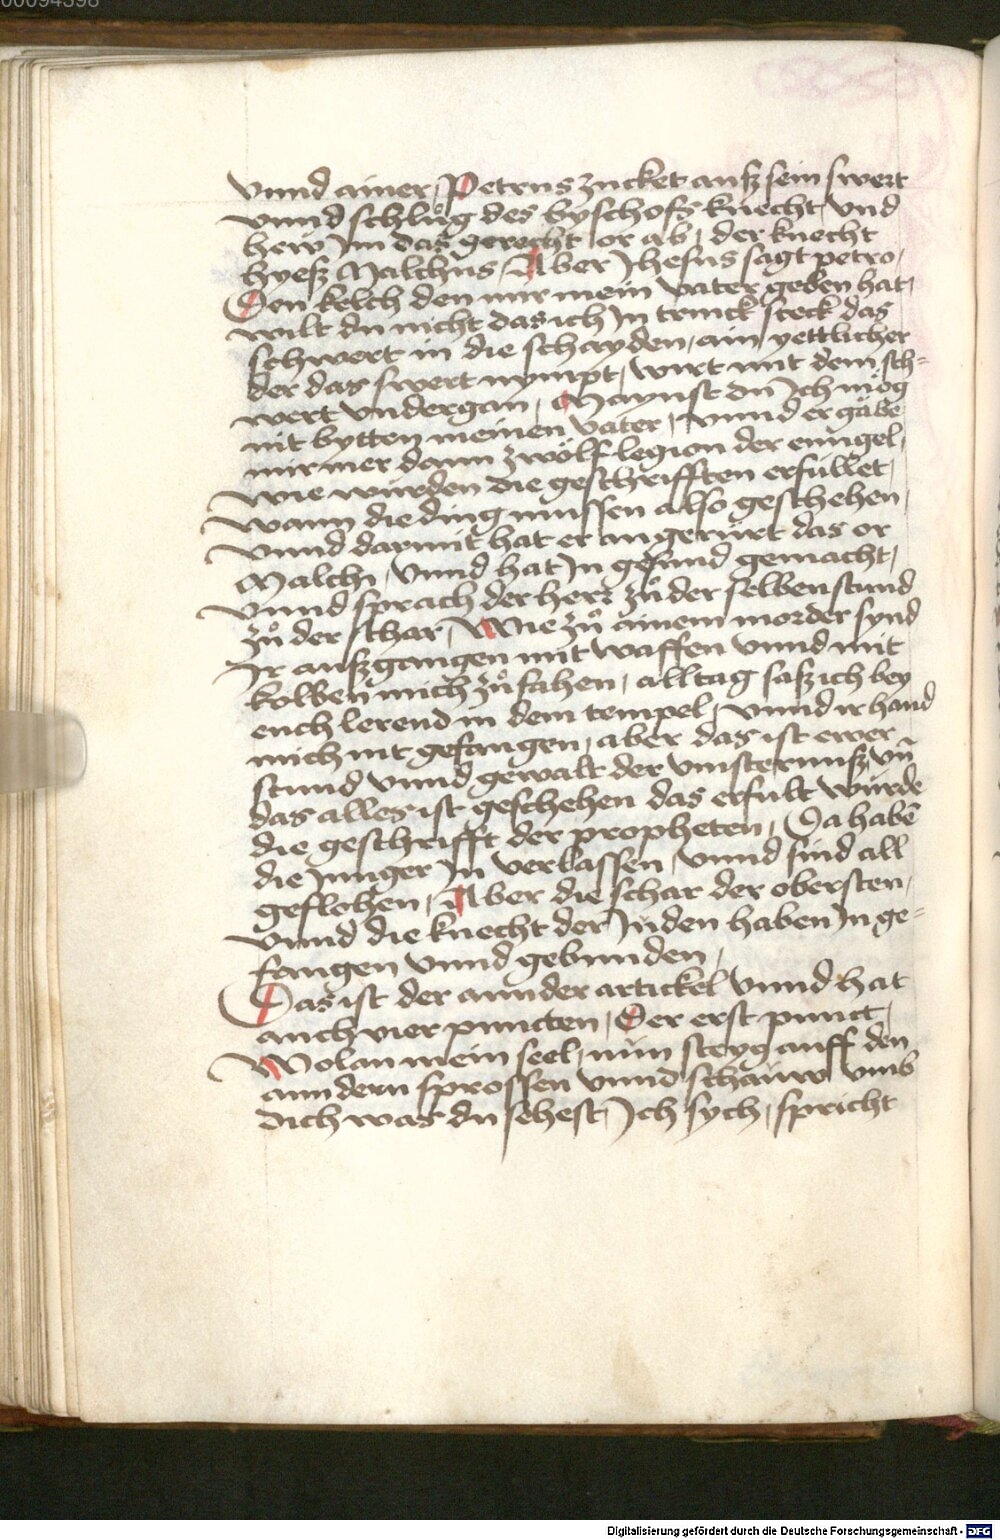 00094398
vnnd ainer, Petrus zucket ausz sein swert
vnnd schlůg des byschofs knecht, vnd
hew im das gerecht or ab, der knecht
hyesz Malchus, Aber Jhesus sagt petro,
Den kelch den mir mein vater geben hat,
wilt du nicht das ich Jn trinck steck das
schwert in die schayden, ain yettlicher
der das swert nympt, wirt mit dem sch=
wert vndergan, Maynst du Jch mög
nit bytten meinen vater, vnnd er gäbe
mir mer dann zwölf legion der enngel,
wie würden die geschrifften erfüllet,
wann die ding müssen also geschehen,
vnnd darmit hat er angerürt das or
Malchi, vnnd hat Jn gesund gemacht,
vnnd sprach der herr zů der selben stund
zů der schar, Wie zů ainem morder synd
Jr auszgangen mit waffen vnnd mit
kolben mich zůfahen, alltag sasz ich bey
euch lerend in dem tempel, vnnd ir hand
mich nit gefangen, aber das ist ewer
stund vnnd gewalt der vinsternusz, vn̄
das alles ist geschehen das erfult würde
die geschrifft der propheten, Da habē
die Junger Jn verlassen, vnnd sind all
geflohen, Aber die schar der obersten,
vnnd die knecht der Juden haben Jn ge=
fangen vnnd gebunden,
Das ist der annder artickel vnnd hat
auch vier puncten, Der erst punct,
Wolan mein seel, nun steyg auff den
anndern sprossen vnnd schauw vmb
dich was du sehest, Jch sych, spricht
Digitalisierung gefördert durch die Deutsche Forschungsgemeinschaft - DFG